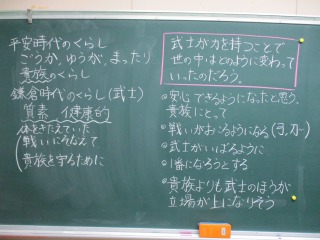 平安時代のくらし
ごうか、ゆうが、まったり
貴族のくらし
鎌倉時代のくらし(武士)
質素 健康的
体をきたえていた
(戦いにそなえて
貴族を守るために
武士が力を持つことで
世の中はどのように変わって
いったのだろう。
◎安心できるようになったと思う。
貴族にとって
◎戦いがおこるようになる(弓、刀)
◎武士がいばるように
◎1番になろうとする
◎貴族よりも武士のほうが
立場が上になりそう